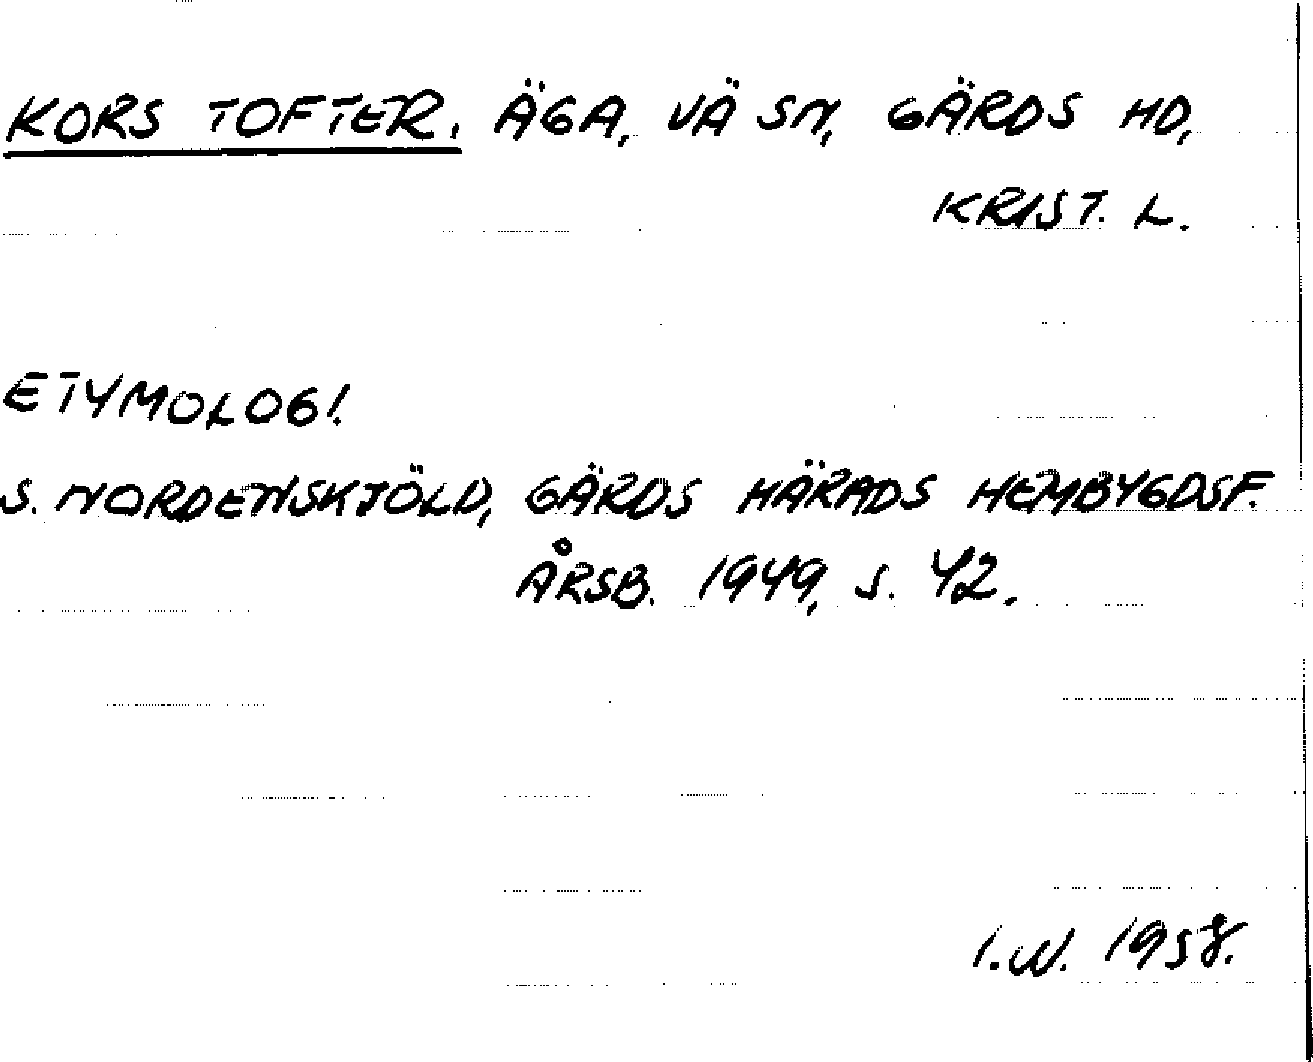 KORS TOFTER. ÄGA, VÄ SN, GÄRDS HD,
KRIST. L.
ETYMOLOGI.
S. NORDENSKJÖLD, GÄRDS HÄRADS HEMBYGDSF.
ÅRSB. 1949, S. 42.
I.W. 1958.